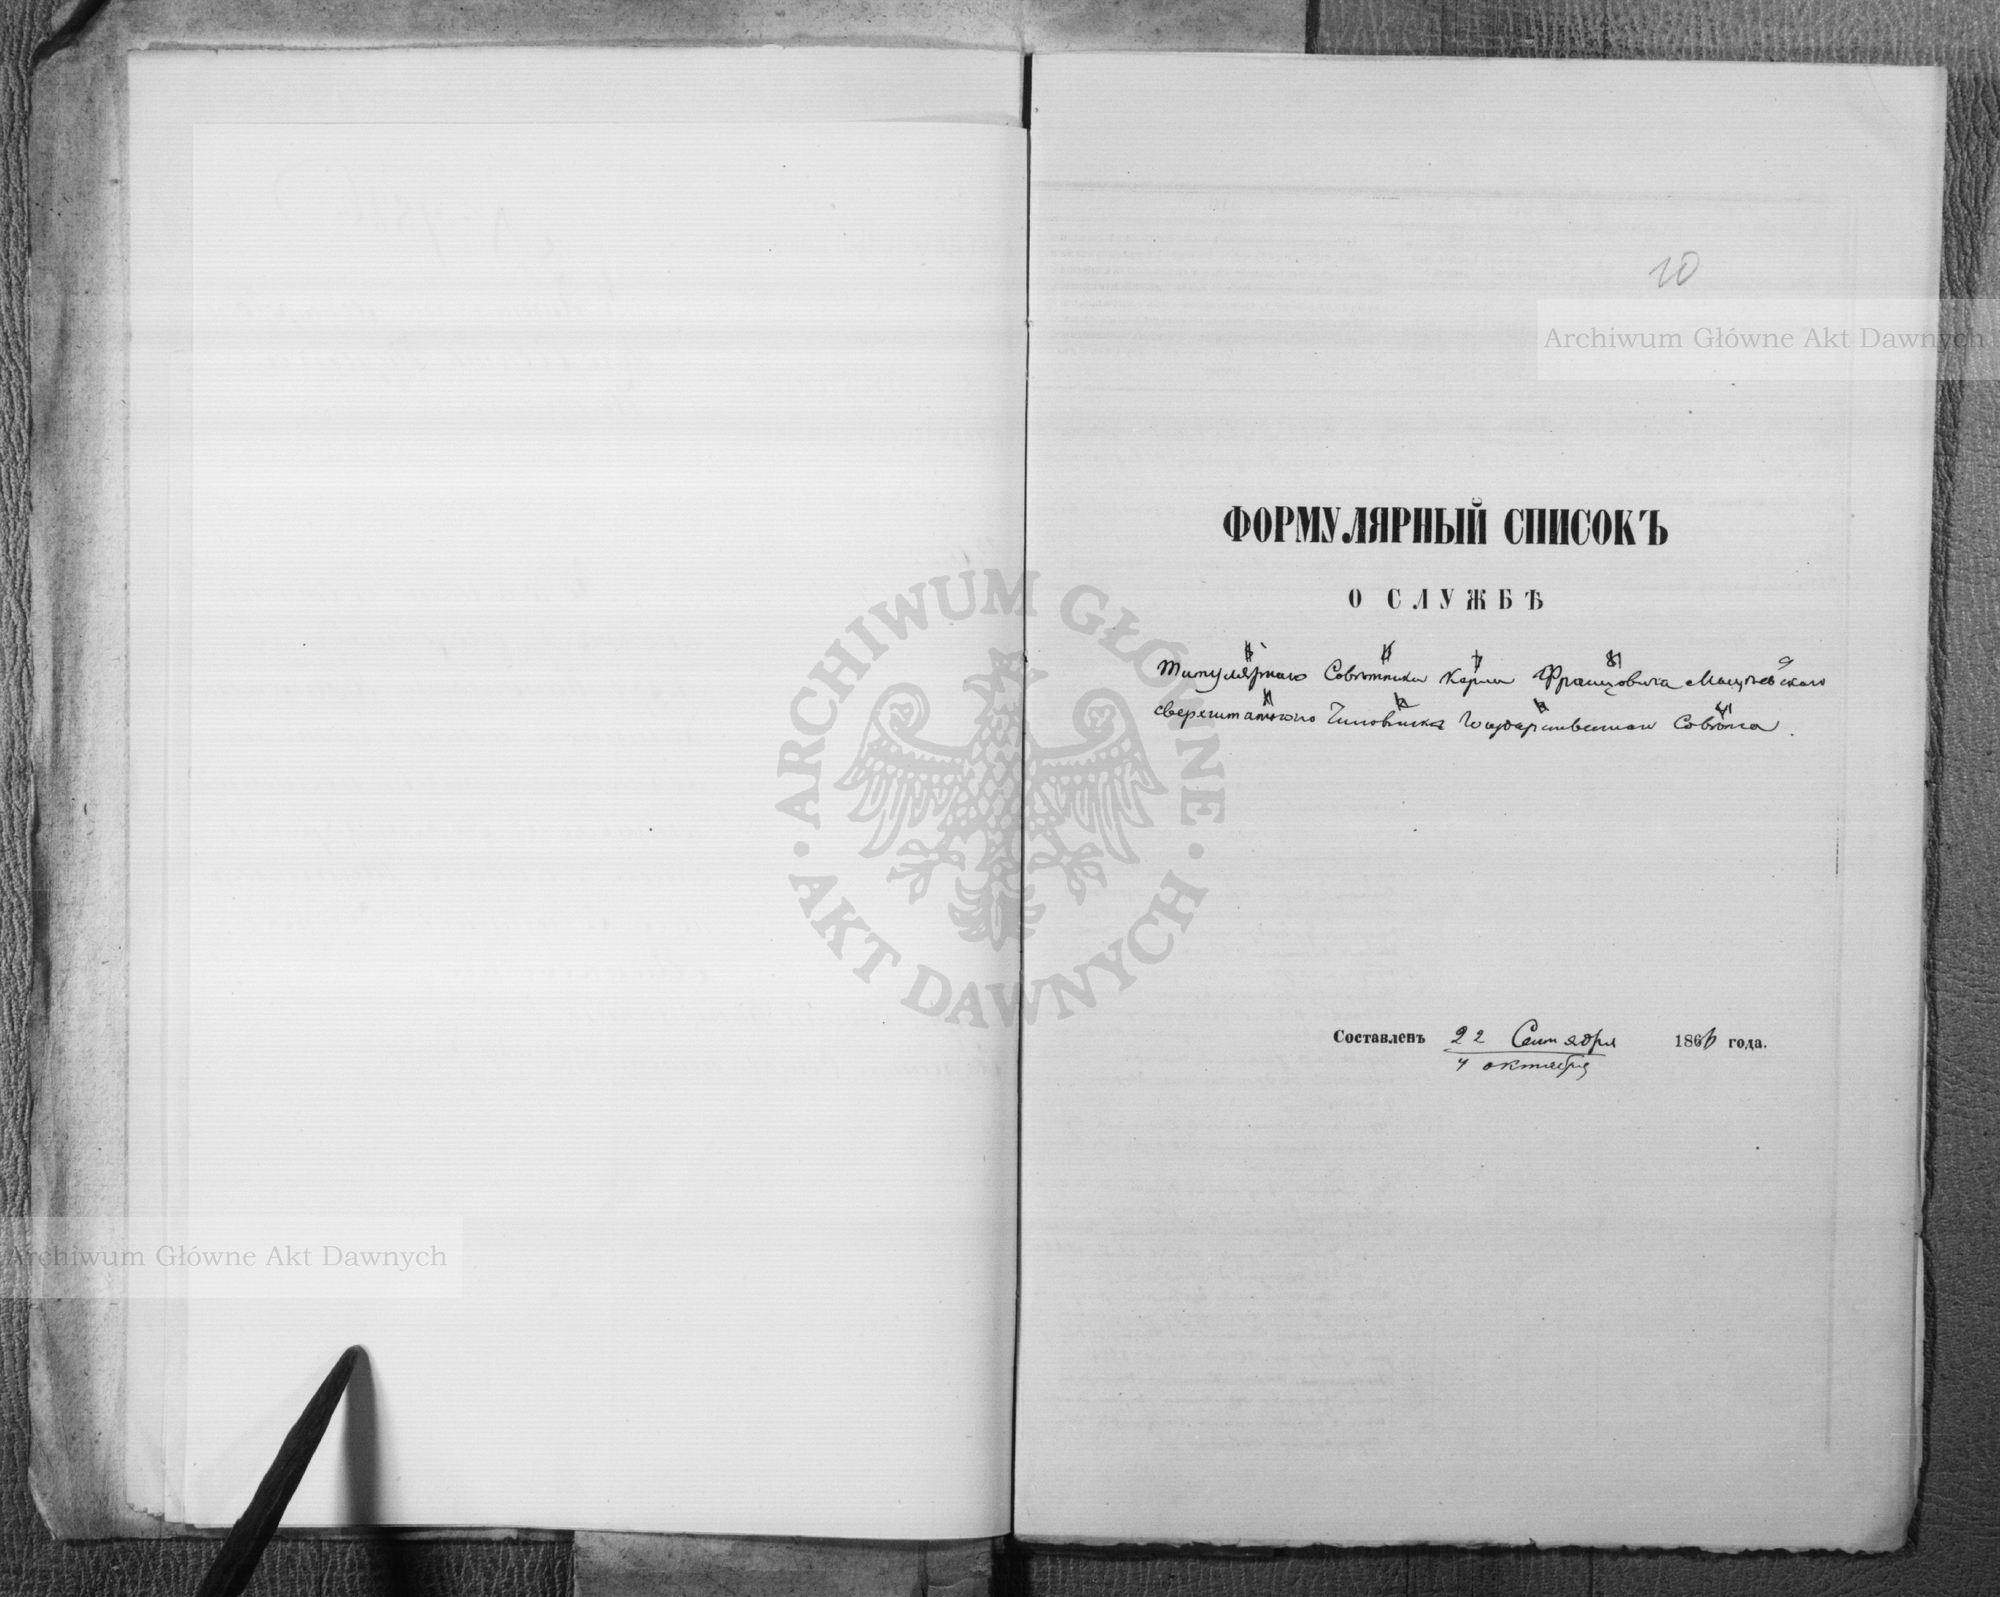 10
Archiwum Główne Akt Dawnych
ФОРМУЛЯРНЫЙ СПИСОКЪ
О СЛУЖБѢ
Титулярнаго Совѣтника Карла Францовича Мацѣевскаго
сверхштатнаго Чиновника Государственнаго Совѣта.
Составленъ 22 Сентября 1866 года.
4 октября
ARCHIWUM GŁÓWNE
AKT DAWNYCH
Archiwum Główne Akt Dawnych